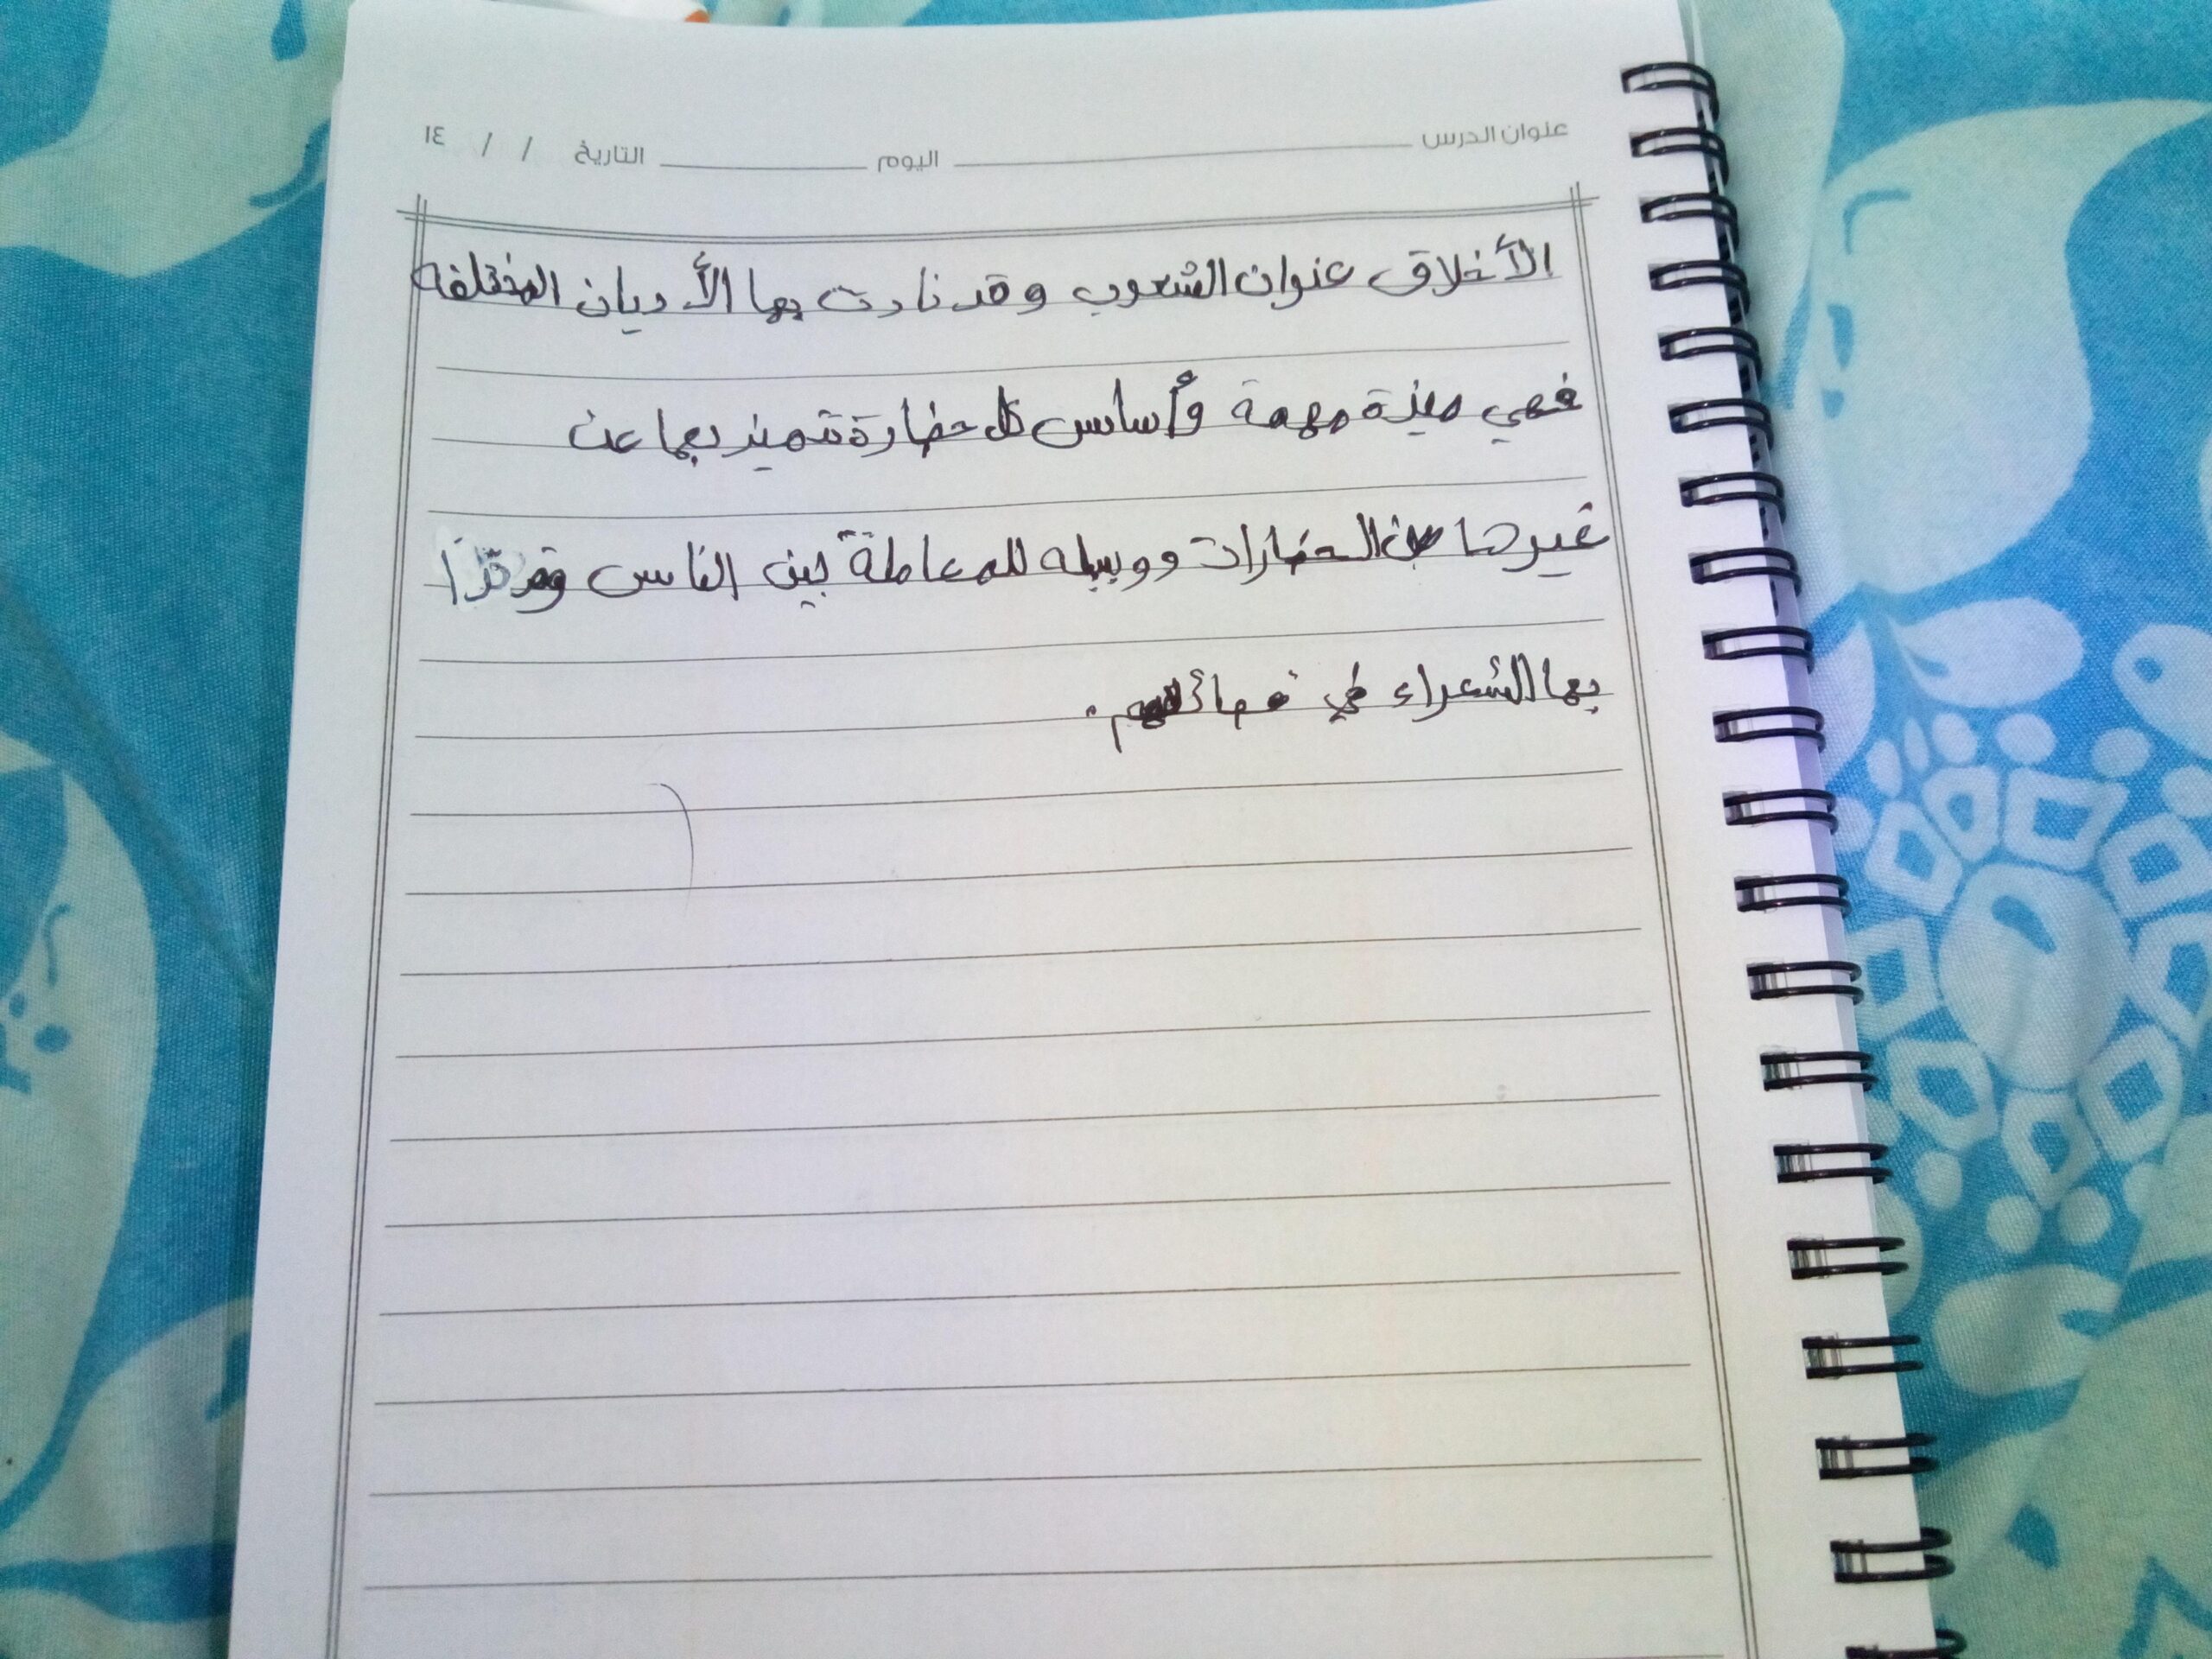 عنوان الدرس اليوم التاريخ / / ١٤
الأخلاق عنوان الشعوب وقد نادت بها الأديان المختلفه
فهي ميزة مهمة وأساس كل حضارة تتميز بها عن
غيرها من الحضارات ووسيله للمعاملة بين الناس وقد
بها الشعراء في قصائدهم.